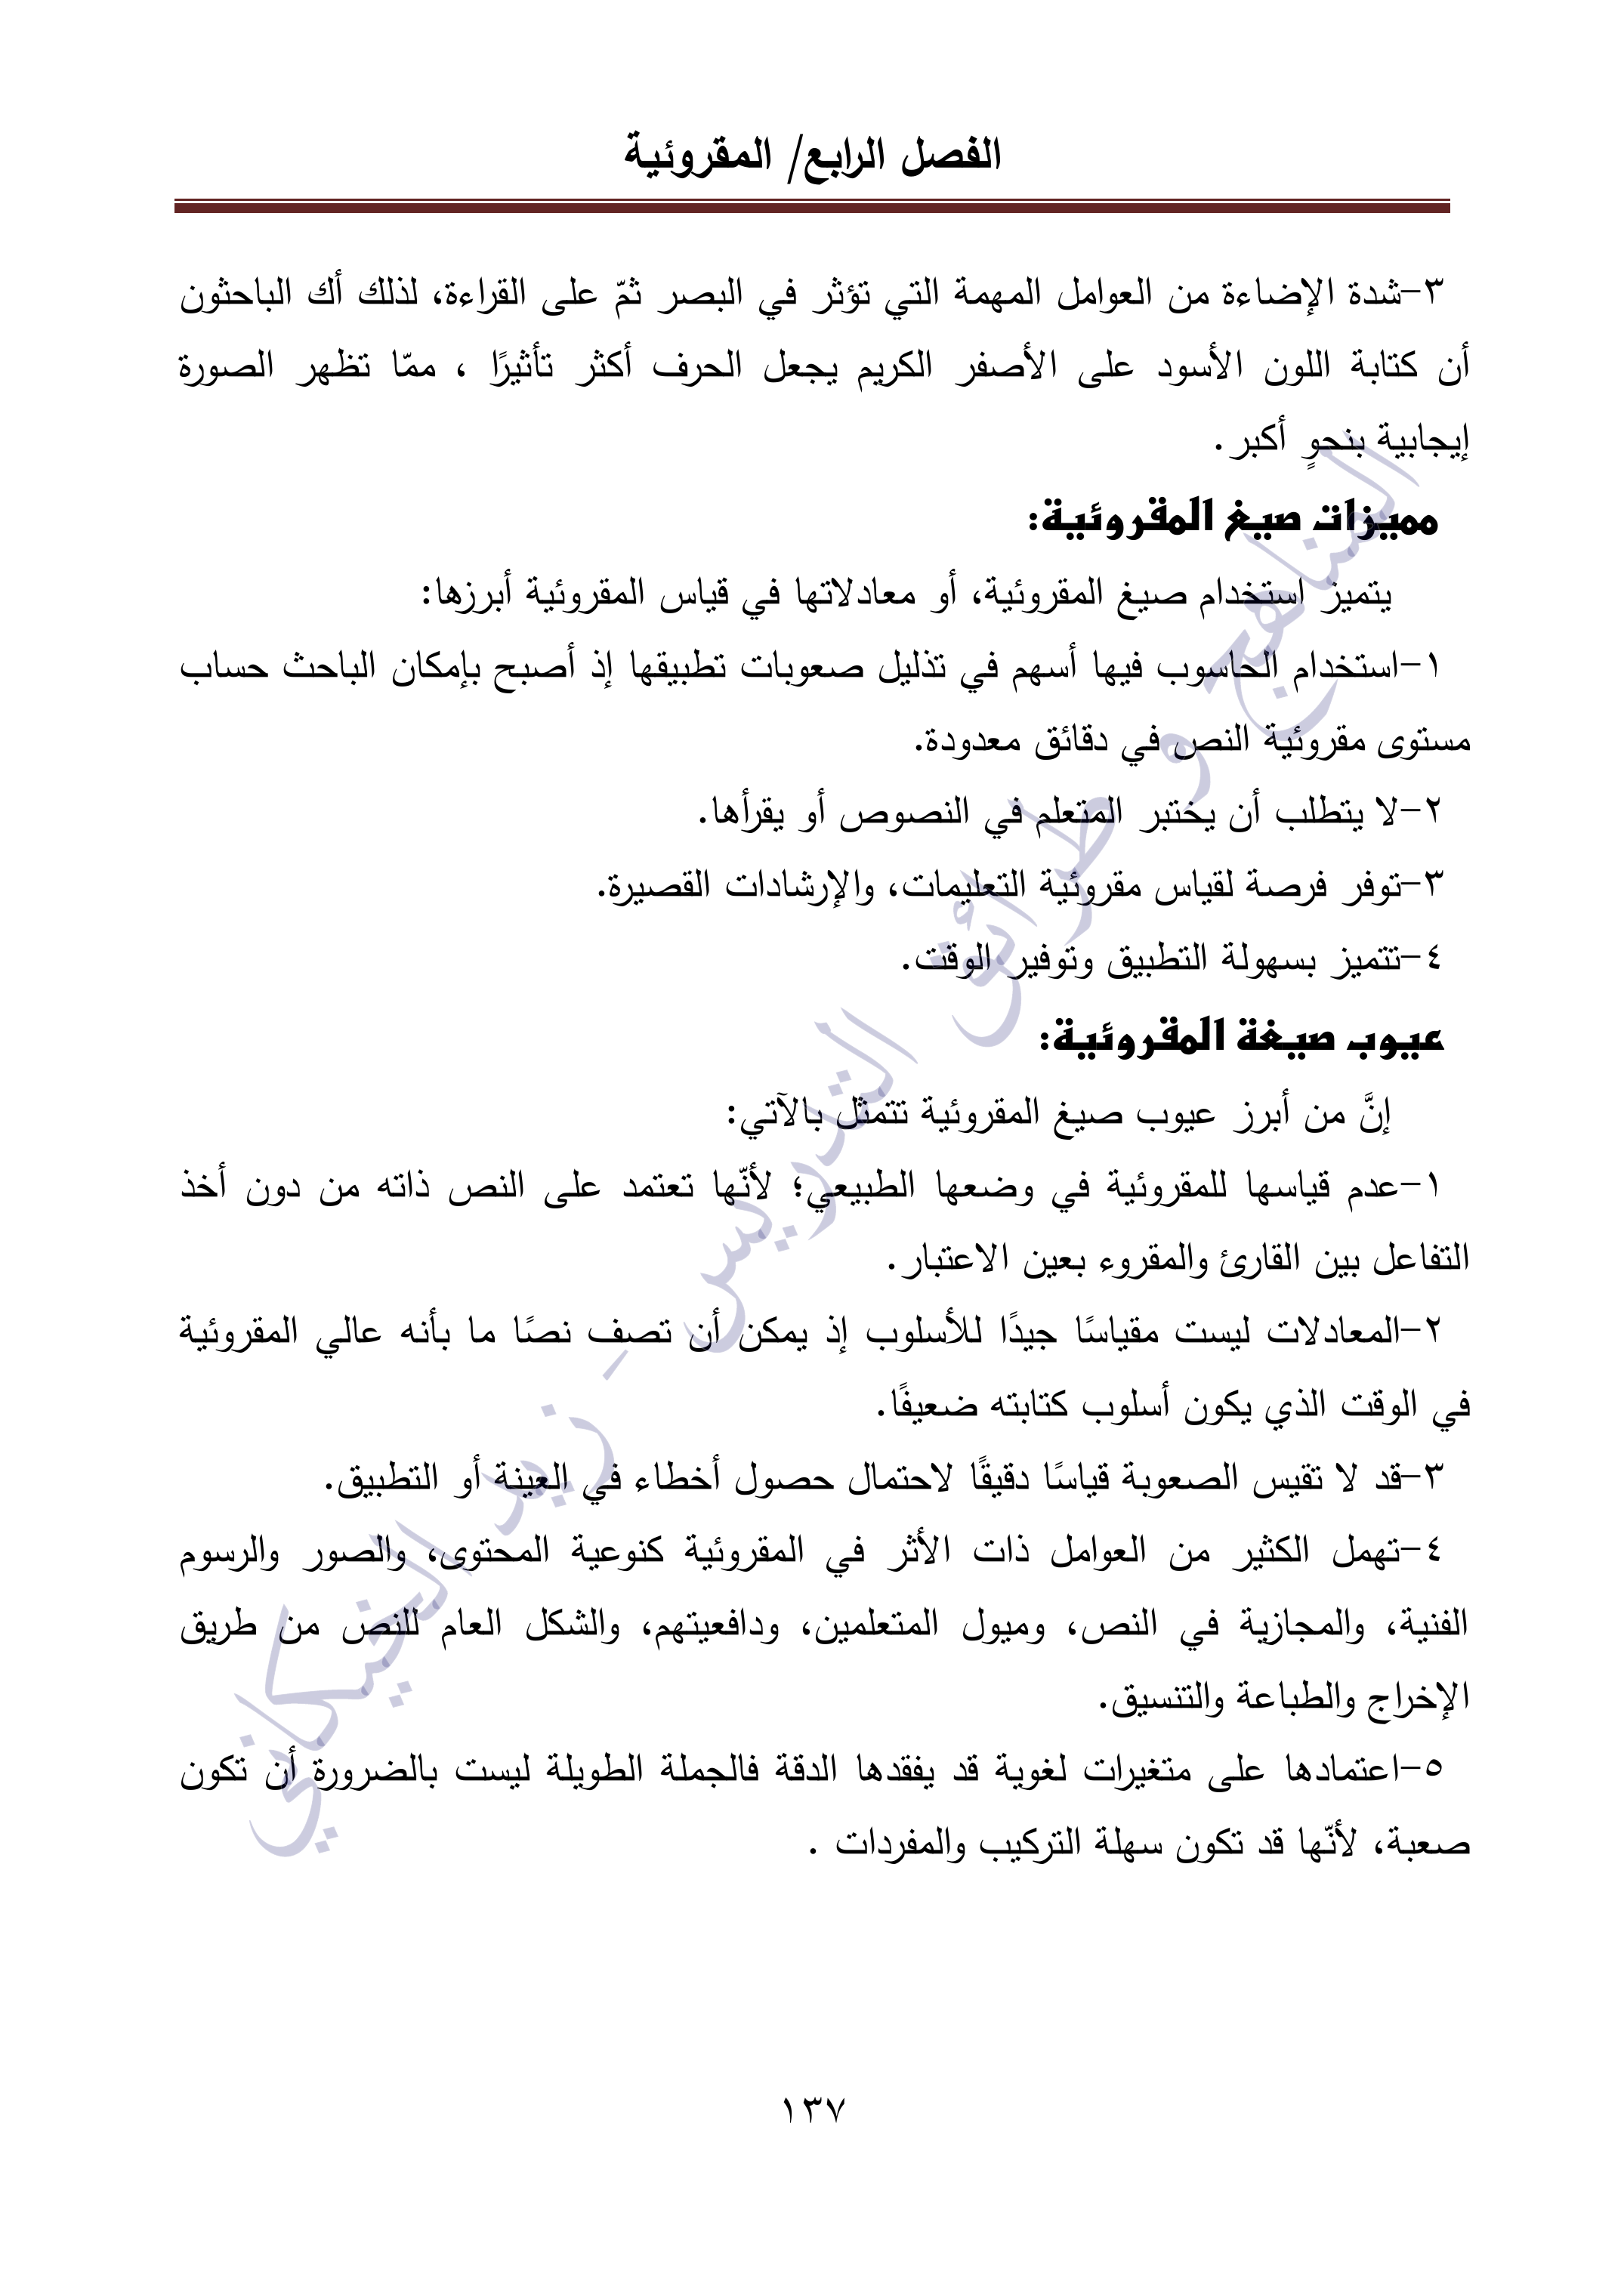 الفصل الرابع/ المقروئية
٣-شدة الإضاءة من العوامل المهمة التي تؤثر في البصر ثمّ على القراءة، لذلك أك الباحثون
أن كتابة اللون الأسود على الأصفر الكريم يجعل الحرف أكثر تأثيرًا ، ممّا تظهر الصورة
إيجابية بنحوٍ أكبر.
مميزات صيغ المقروئية:
يتميز استخدام صيغ المقروئية، أو معادلاتها في قياس المقروئية أبرزها:
١-استخدام الحاسوب فيها أسهم في تذليل صعوبات تطبيقها إذ أصبح بإمكان الباحث حساب
مستوى مقروئية النص في دقائق معدودة.
٢-لا يتطلب أن يختبر المتعلم في النصوص أو يقرأها.
٣-توفر فرصة لقياس مقروئية التعليمات، والإرشادات القصيرة.
٤-تتميز بسهولة التطبيق وتوفير الوقت.
عيوب صيغة المقروئية:
إنَّ من أبرز عيوب صيغ المقروئية تتمثل بالآتي:
١-عدم قياسها للمقروئية في وضعها الطبيعي؛ لأنّها تعتمد على النص ذاته من دون أخذ
التفاعل بين القارئ والمقروء بعين الاعتبار.
٢-المعادلات ليست مقياسًا جيدًا للأسلوب إذ يمكن أن تصف نصًا ما بأنه عالي المقروئية
في الوقت الذي يكون أسلوب كتابته ضعيفًا.
٣-قد لا تقيس الصعوبة قياسًا دقيقًا لاحتمال حصول أخطاء في العينة أو التطبيق.
٤-تهمل الكثير من العوامل ذات الأثر في المقروئية كنوعية المحتوى، والصور والرسوم
الفنية، والمجازية في النص، وميول المتعلمين، ودافعيتهم، والشكل العام للنص من طريق
الإخراج والطباعة والتنسيق.
٥-اعتمادها على متغيرات لغوية قد يفقدها الدقة فالجملة الطويلة ليست بالضرورة أن تكون
صعبة، لأنّها قد تكون سهلة التركيب والمفردات .
المناهج و طرائق التدريس - زيد الخيكاني
١٣٧